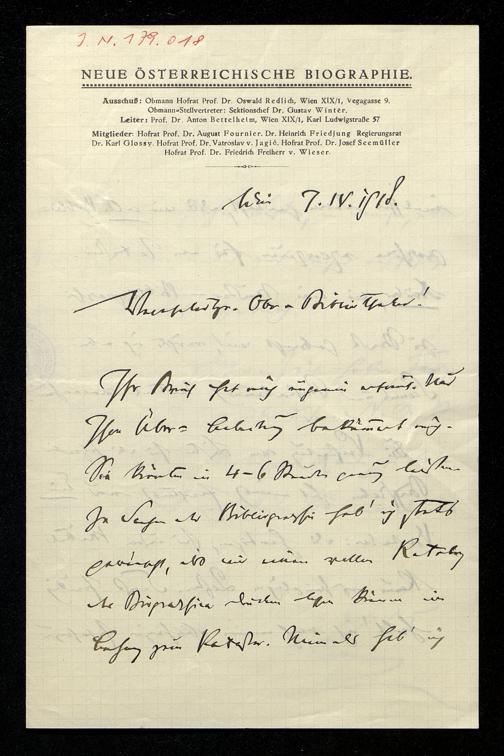 I. N. 179.018
NEUE ÖSTERREICHISCHE BIOGRAPHIE.
Ausschuß: Obmann Hofrat Prof. Dr. Oswald Redlich, Wien XIX/1, Vegagasse 9.
Obmann-Stellvertreter: Sektionschef Dr. Gustav Winter.
Leiter: Prof. Dr. Anton Bettelheim, Wien XIX/1, Karl Ludwigstraße 57
Mitglieder: Hofrat Prof. Dr. August Fournier. Dr. Heinrich Friedjung Regierungsrat
Dr. Karl Glossy. Hofrat Prof. Dr. Vatroslav v. Jagić. Hofrat Prof. Dr. Josef Seemüller
Hofrat Prof. Dr. Friedrich Freiherr v. Wieser.
Wien 7. IV. 1918.
Ober-Bibliothekar!
Ihr Brief hat mich ungemein erfreut. Nur
Ihre Über-belastung bekümmert mich.
Sie könnten in 4-6 Stunden genug leisten.
In Sachen der Bibliographie hab' ich stets
Katalog
der Biographien
zum Kataster. Niemals hab' ich